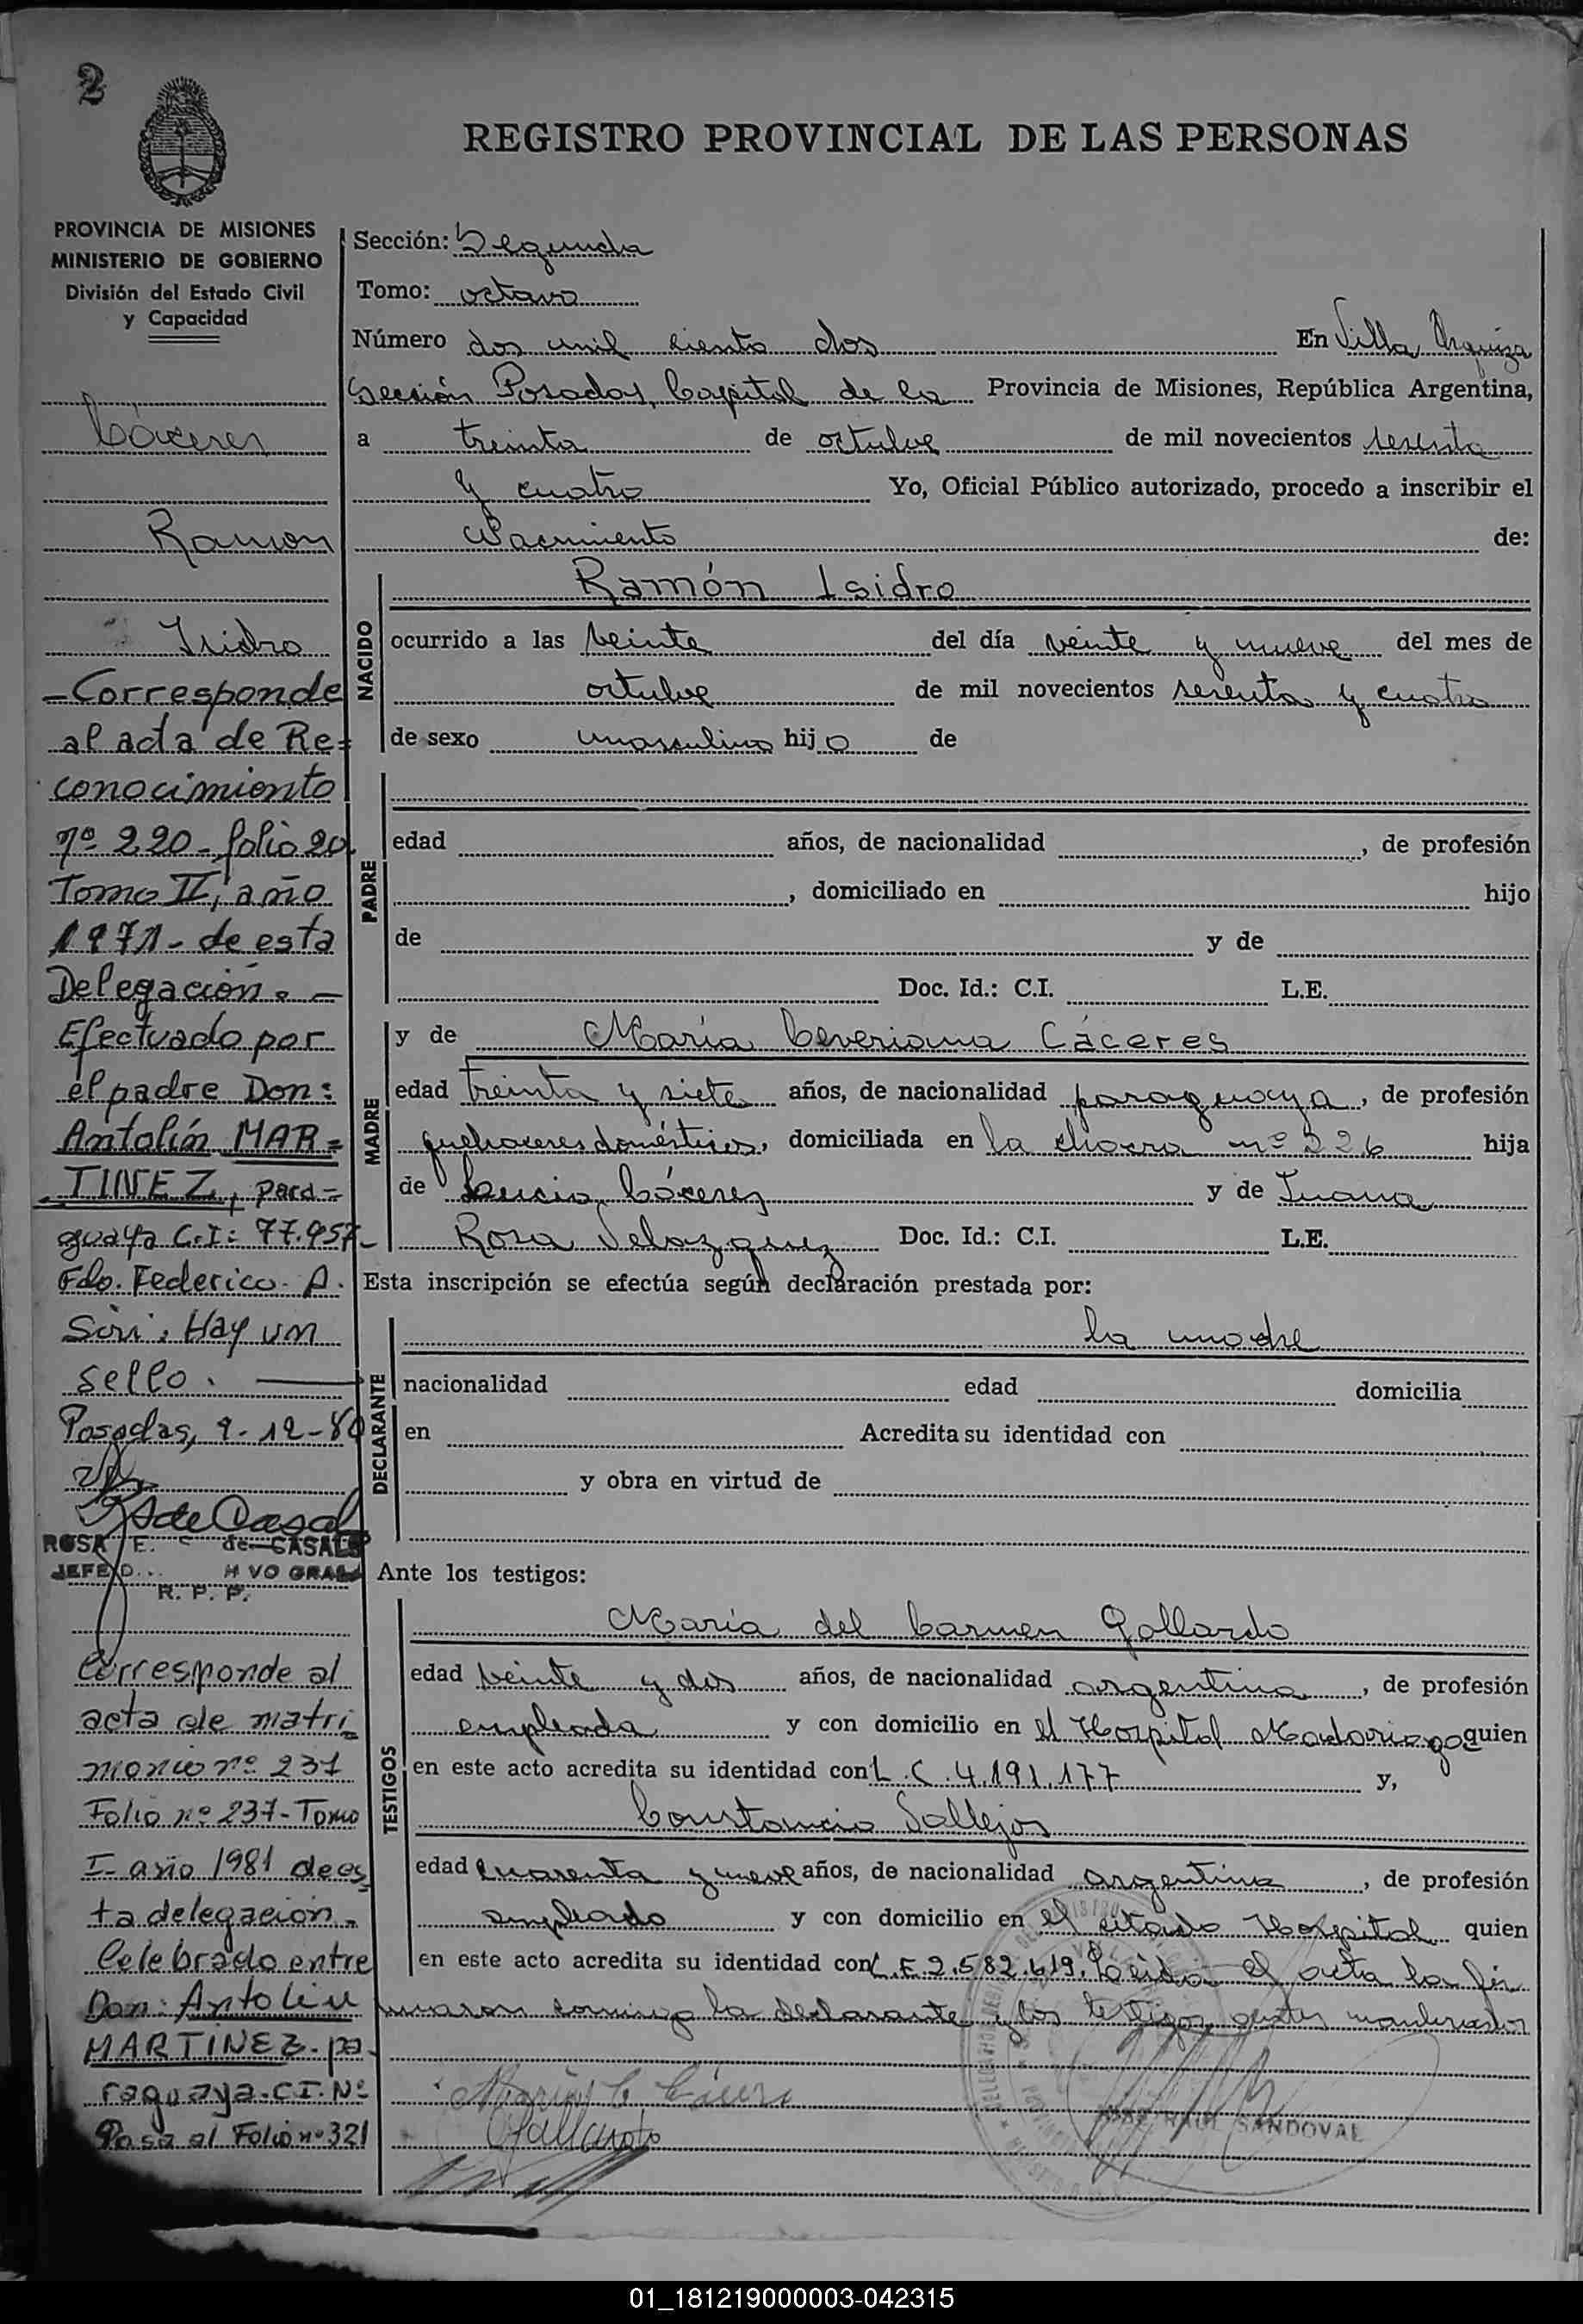 2
REGISTRO PROVINCIAL DE LAS PERSONAS
PROVINCIA DE MISIONES
MINISTERIO DE GOBIERNO
División del Estado Civil
y Capacidad
Cáceres
Ramon
Isidro
-Corresponde
al acta de Re=
conocimiento
nº 220-folio 20
Tomo II, año
1971-de esta
Delegación.-
Efectuado por
el padre Don:
Antolín MAR=
TINEZ, para=
guaya C.I: 77.957-
Fdo. Federico A.
Siri. Hay un
sello.
Posadas, 9-12-80
ROSA E. de CASALS
JEFE D... VO GRAL
R. P. P.
Corresponde al
acta de matri
monio nº 237
Folio nº 237-Tomo
I-año 1981 de es
ta delegación.
Celebrado entre
Don: Antolin
MARTINEZ-pa-
raguaya-C.I. Nº
Pasa al Folio nº 321
Sección: Segunda
Tomo: octavo
Número dos mil ciento dos En Villa Urquiza
Sección Posadas, Capital de la Provincia de Misiones, República Argentina,
a treinta de octubre de mil novecientos sesenta
y cuatro Yo, Oficial Público autorizado, procedo a inscribir el
Nacimiento de:
NACIDO
Ramón Isidro
ocurrido a las veinte del día veinte y nueve del mes de
octubre de mil novecientos sesenta y cuatro
de sexo masculino hijo de
PADRE
edad años, de nacionalidad , de profesión
, domiciliado en hijo
de y de
Doc. Id.: C.I. L.E.
MADRE
y de María Ceveriana Cáceres
edad treinta y siete años, de nacionalidad paraguaya, de profesión
quehaceres domésticos, domiciliada en la chacra nº 226 hija
de Lucio Cáceres y de Juana
Rosa Velazquez Doc. Id.: C.I. L.E.
Esta inscripción se efectúa según declaración prestada por:
DECLARANTE
la madre
nacionalidad edad domicilia
en Acredita su identidad con
y obra en virtud de
Ante los testigos:
TESTIGOS
María del Carmen Gallardo
edad veinte y dos años, de nacionalidad argentina, de profesión
empleada y con domicilio en el Hospital Madariaga quien
en este acto acredita su identidad con L.C. 4.191.177 y,
Constancio Vallejos
edad cuarenta y nueve años, de nacionalidad argentina, de profesión
empleado y con domicilio en el citado Hospital quien
en este acto acredita su identidad con L.E 2.582.619. Leida el acta la fir
maron conmigo la declarante y los testigos
Gallardo
RAUL SANDOVAL
01_181219000003-042315